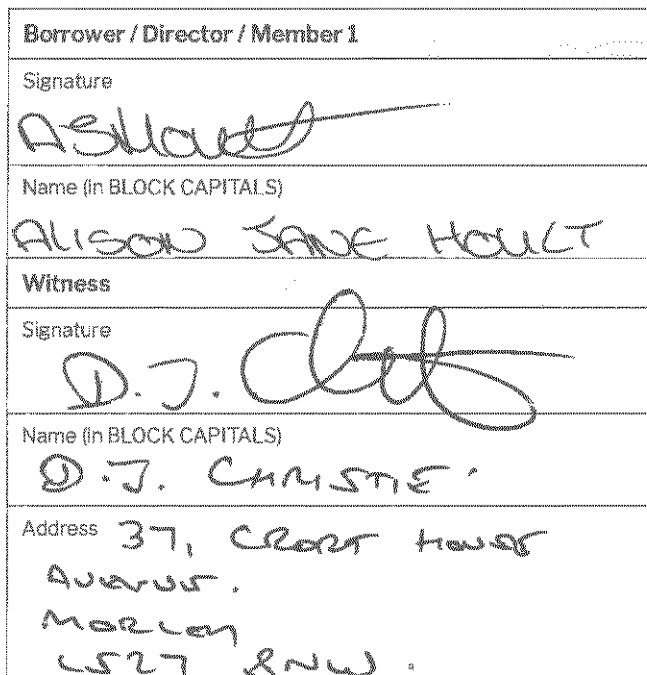 Borrower / Director / Member 1
Signature
AJHoult
Name (in BLOCK CAPITALS)
ALISON JANE HOULT
Witness
Signature
D. J.
Name (in BLOCK CAPITALS)
D. J. CHRISTIE.
Address 37, CROFT HOUSE
AVENUE.
MORLEY
LS27 8NW.